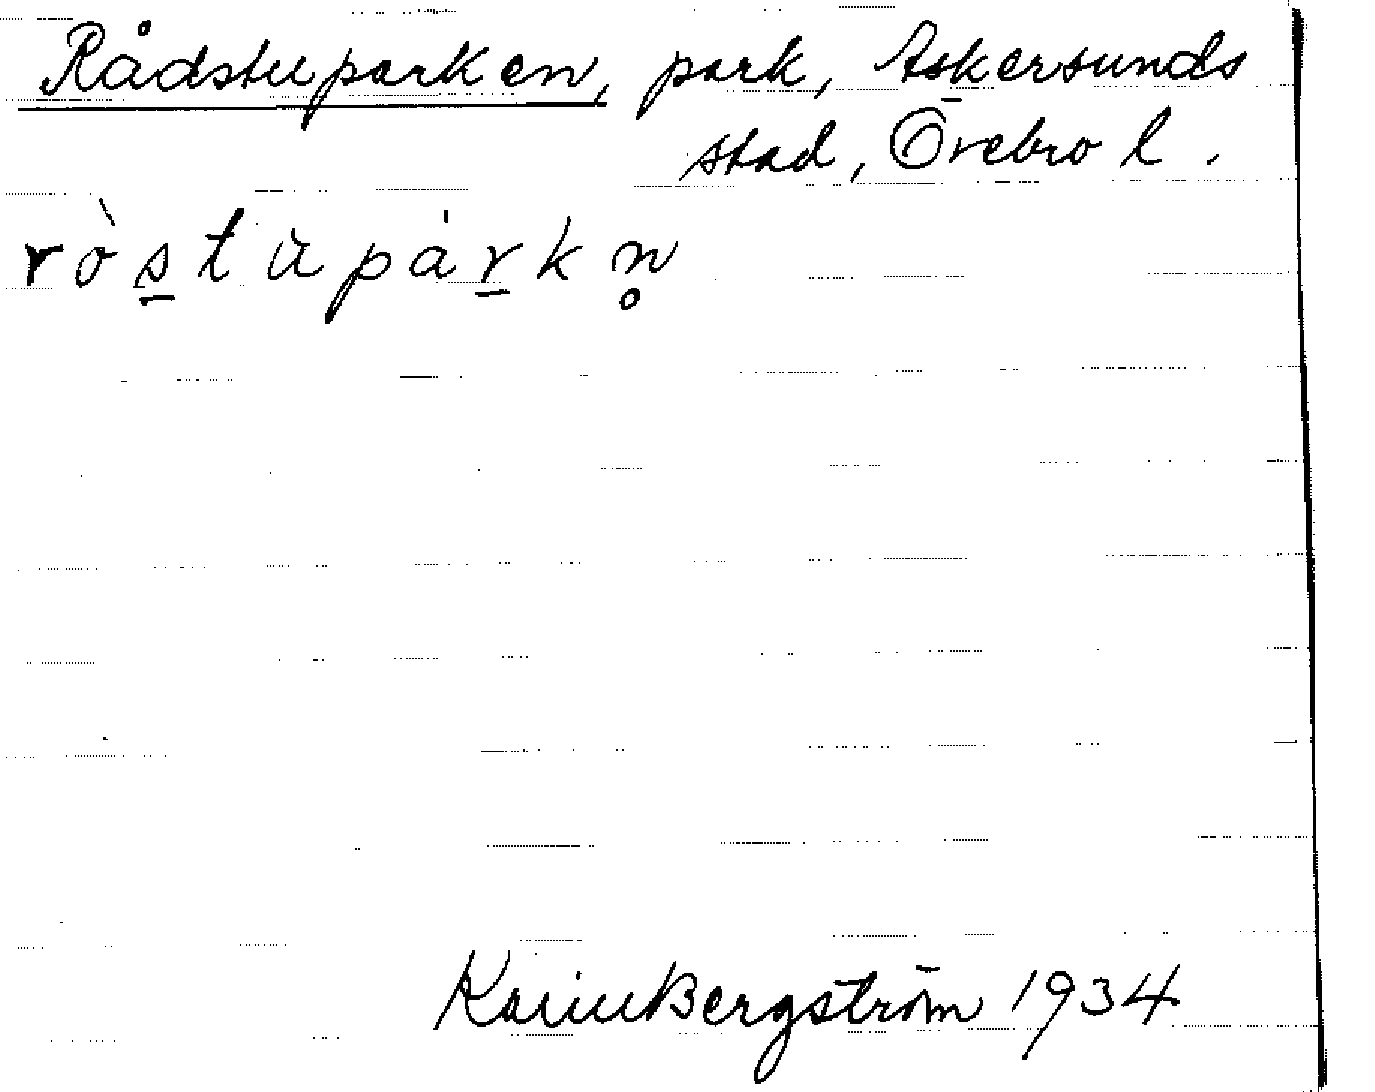 Rådstuparken, park, Askersunds
stad, Örebro l.
ròstupárkn̥
Karin Bergström 1934